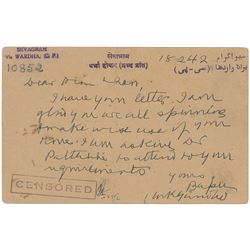 SEVAGRAM
via WARDHA, (C. P.)
सेवाग्राम
वर्धा होकर (मध्य प्रांत)
سیواگرام
10352
18-2-42
I have your letter. I am
glad you are all spinning
& make wise use of your
time. I am asking Dr
to attend to your
requirements.
Yours
Bapu
MKGandhi
CENSORED